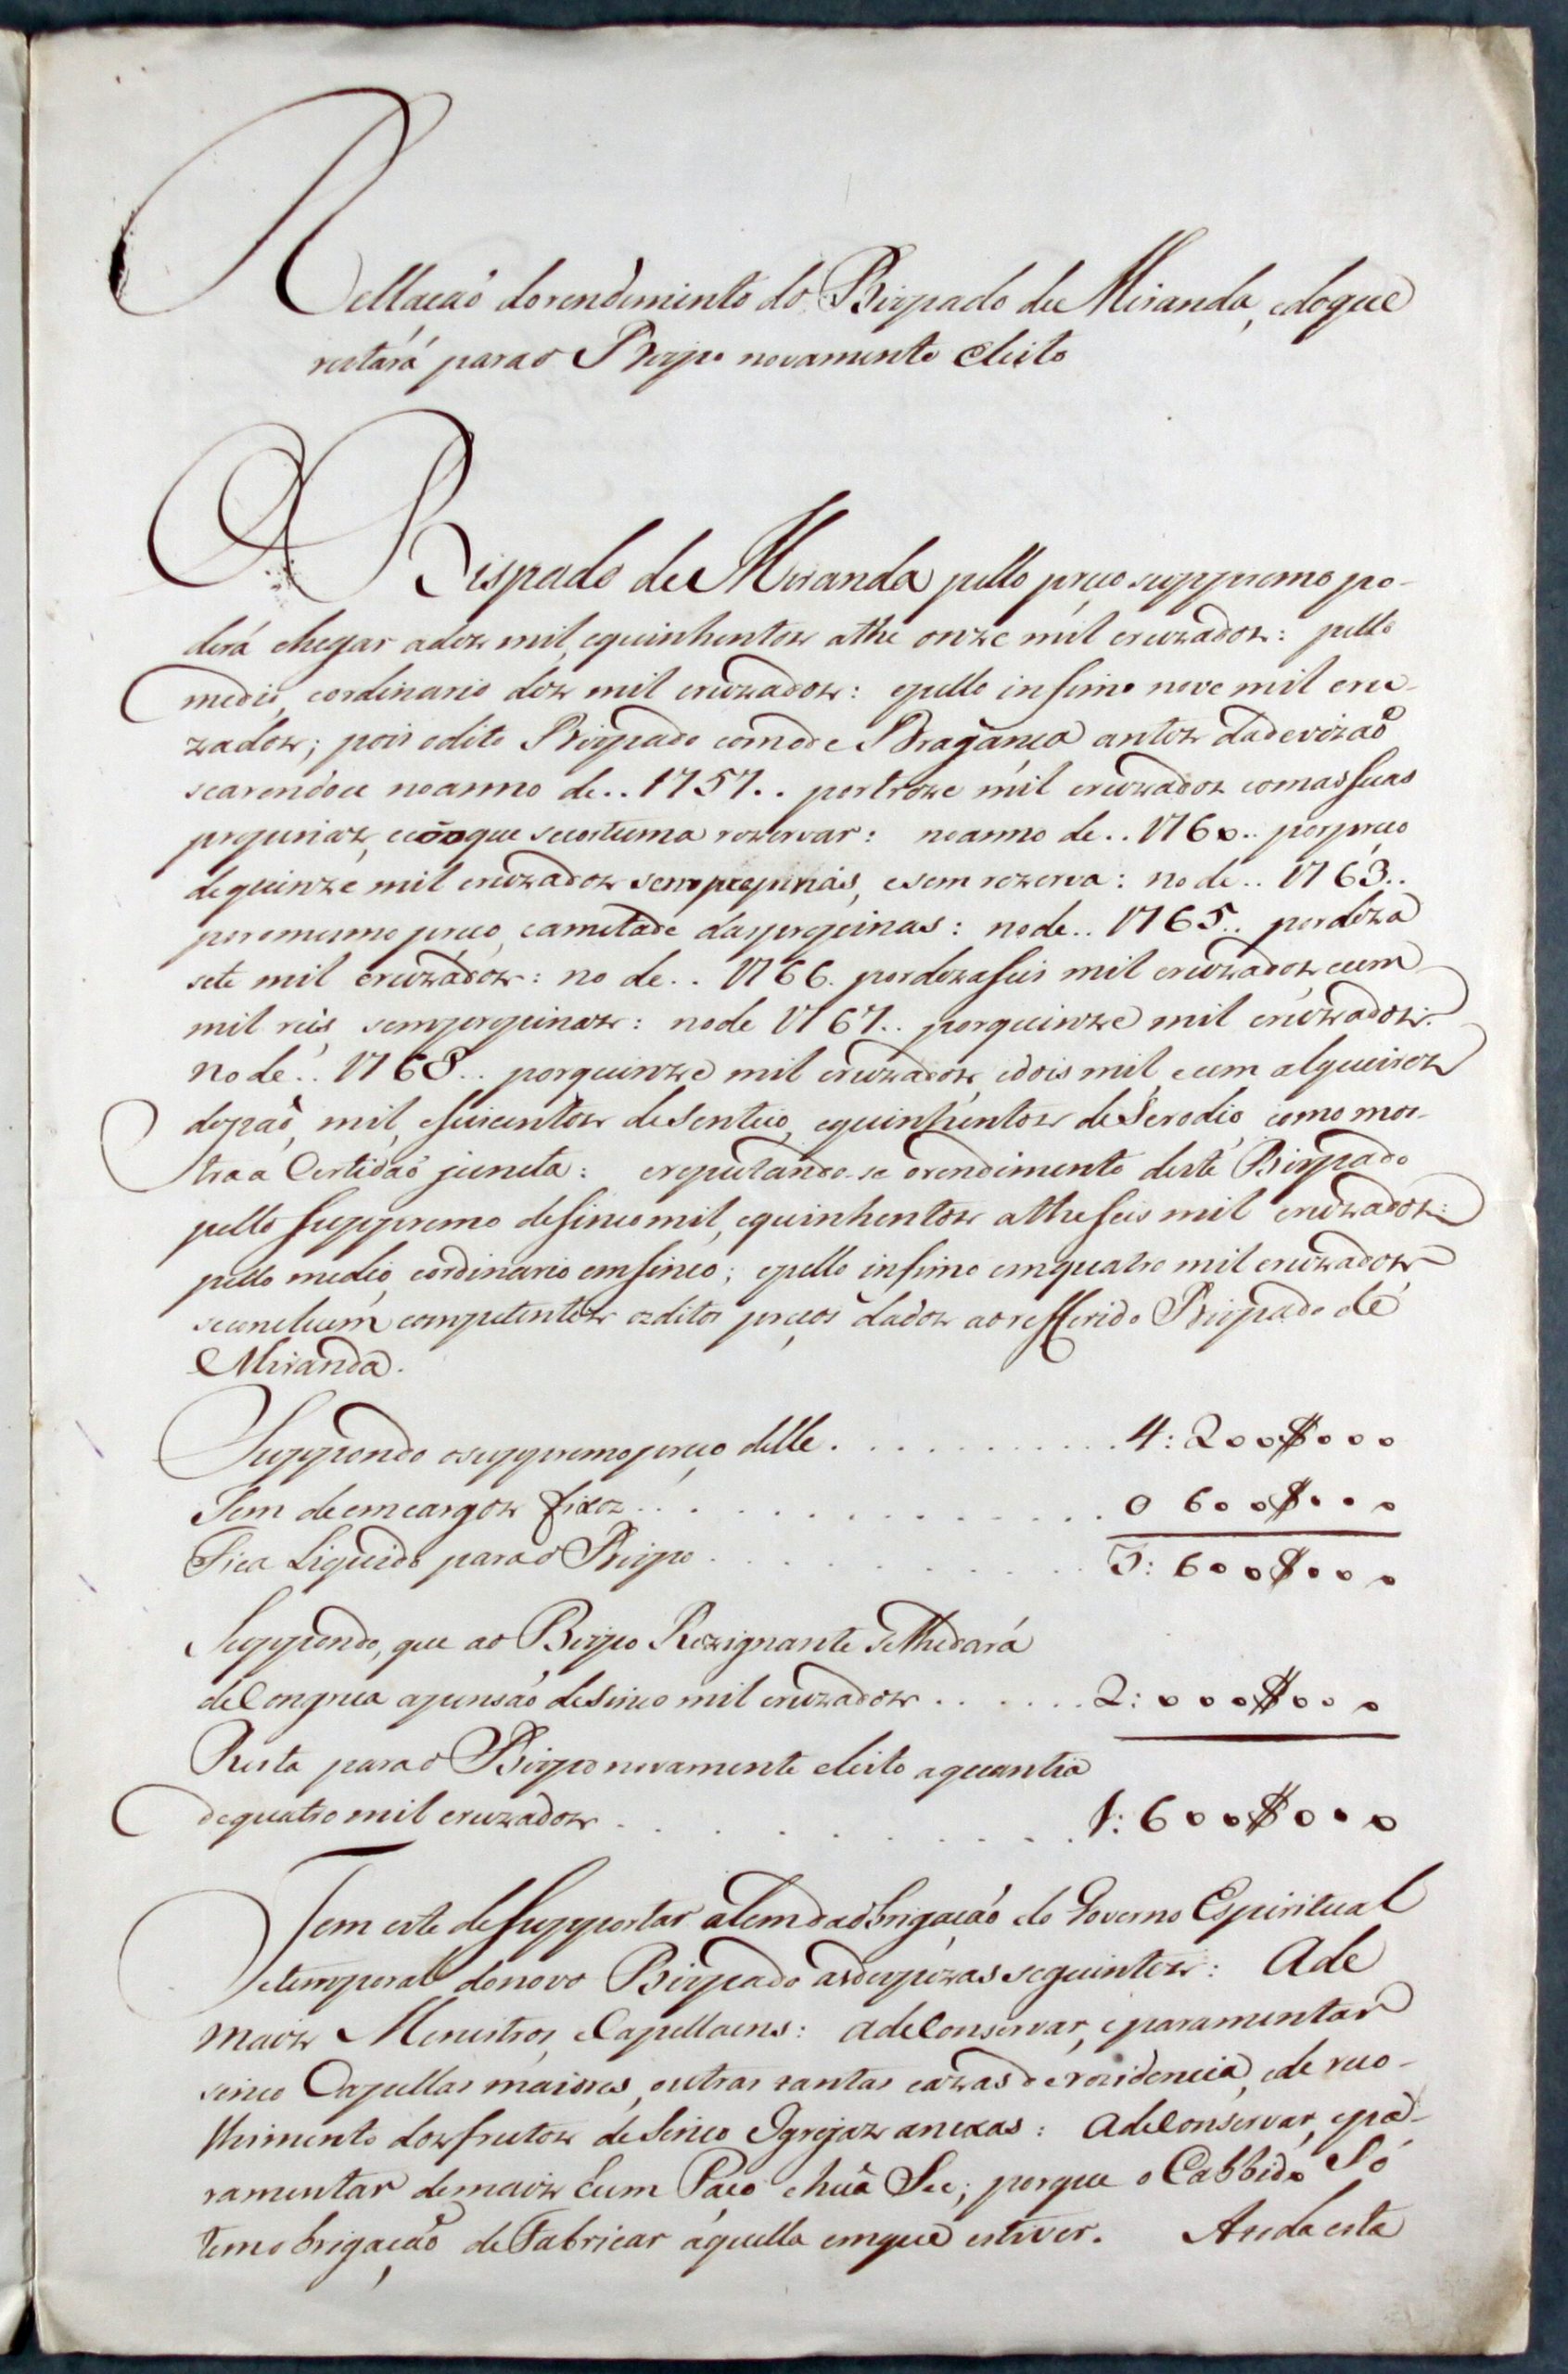 Rellacaõ do rendimento do Bispado de Miranda, e do que
restará para o Bispo novamente eleito
O Bispado de Miranda pello preco suppremo po-
derá chegar a dez mil, e quinhentos athe onze mil cruzados: pello
medio, e ordinario dez mil cruzados: e pello infimo nove mil cru-
zados; pois o dito Bispado com o de Bragança antes da devizaõ
se arendou no anno de .. 1757 .. por treze mil cruzados com as suas
propinas, e o que se costuma rezervar: no anno de .. 1760 .. por preco
de quinze mil cruzados sem propinas, e sem rezerva: no de .. 1763 ..
por o mesmo preço, e ametade das propinas: no de .. 1765 .. por deza
sete mil cruzados: no de .. 1766. por dezaseis mil cruzados, e um
mil reis, sem propinas: no de 1767 .. por quinze mil cruzados:
no de .. 1768 .. por quinze mil cruzados, e dois mil, e um alqueires
de paõ, mil, e seiscentos de Senteio, e quinhentos de Serodio, como mos-
tra a Certidaõ juncta: e reputando-se o rendimento deste Bispado
pello suppremo de sinco mil, e quinhentos athe seis mil cruzados:
pello medio, e ordinario em sinco; e pello infimo em quatro mil cruzados
se concluem competentes os ditos preços dados ao refferido Bispado de
Miranda.
Suppondo o suppremo preço delle . . . . . . . . . . 4: 200$000
Tem de emcargos fixos . . . . . . . . . . . . . . 0 600$000
Fica Liquido para o Bispo . . . . . . . . . . . . 3: 600$000
Suppondo, que ao Bispo Rezignante se lhe dará
de Congrua a pensaõ de sinco mil cruzados . . . . . . 2: 000$000
Resta para o Bispo novamente eleito a quantia
de quatro mil cruzados . . . . . . . . . . . 1: 600$000
Tem este de supportar alem da obrigaçaõ do Governo Espiritual
e temporal do novo Bispado as despezas seguintes: A de
mais Menistros, e Capellaens: a de Conservar, e paramentar
sinco Capellas maiores, outras tantas cazas de rezidencia, e de reco-
lhimento dos frutos de sinco Igrejas anexas: A de Conservar, e pa-
ramentar demais hum Paco e huã See; porque o Cabbido Só
tem obrigaçaõ de Fabricar aquella em que estiver. Ainda esta